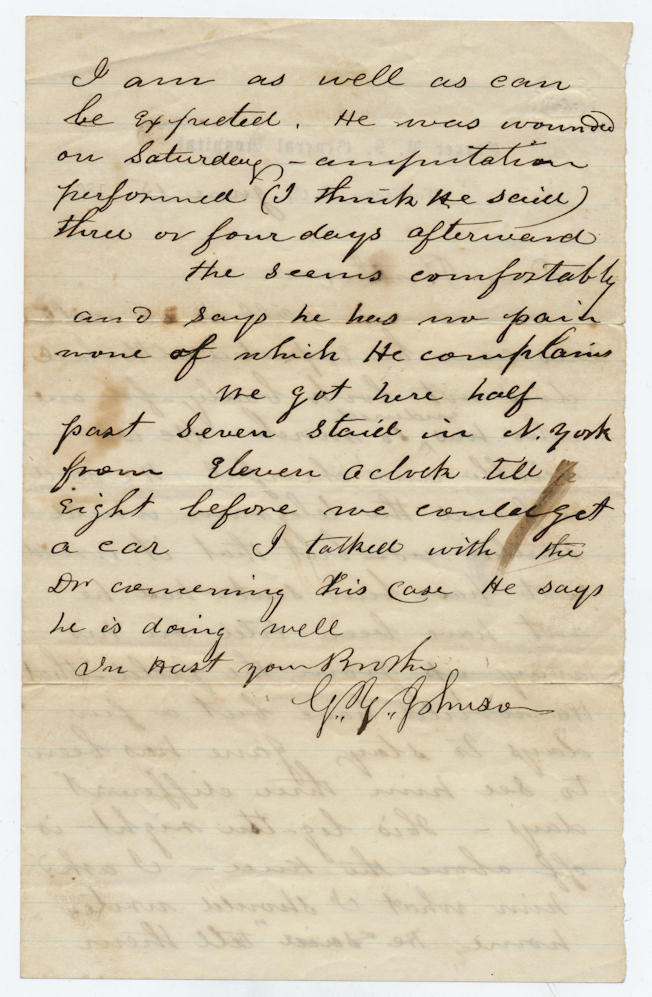 I am as well as can
be Expected. He was wounded
on Saturday – amputation
performed (I think He said)
three or four days afterward
He seems comfortably
and says he has no pain
none of which He complains
We got here half
past Seven Staid in N. York
from Eleven aclock till
Eight before we could get
a car I talked with the
Dr concerning his Case He says
he is doing well
In Hast your Brother
G. Y. Johnson